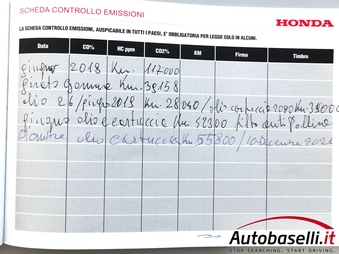 SCHEDA CONTROLLO EMISSIONI
HONDA
LA SCHEDA CONTROLLO EMISSIONI, AUSPICABILE IN TUTTI I PAESI, E' OBBLIGATORIA PER LEGGE SOLO IN ALCUNI.
Data CO% HC ppm CO2% KM Firma Timbro
giugno 2018 Km. 117000
Gomme Km. 39158
olio 26/giugno 2018 Km. 28040/olio cartuccia 2020 Km 38000
giugno olio e cartuccia/Km. 42300 filtro antipolline
olio cartuccia Km 55800/10 Dicembre
Autobaselli.it
STOP SEARCHING. START DRIVING.